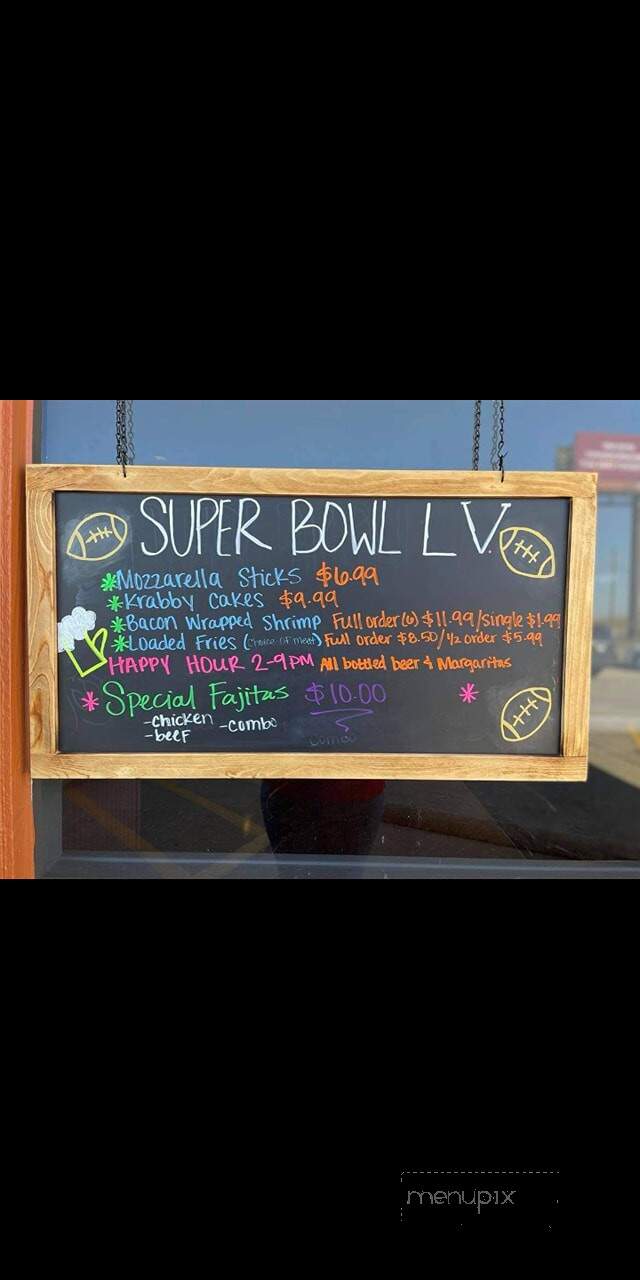 SUPER BOWL L V.
*Mozzarella Sticks $6.99
*Krabby Cakes $9.99
*Bacon Wrapped Shrimp Full order(6) $11.99/single $1.99
*Loaded Fries (choice of meat) Full order $8.50/½ order $5.99
HAPPY HOUR 2-9PM All bottled beer & Margaritas
*Special Fajitas $10.00 *
-chicken -combo
-beef
combo
menupix